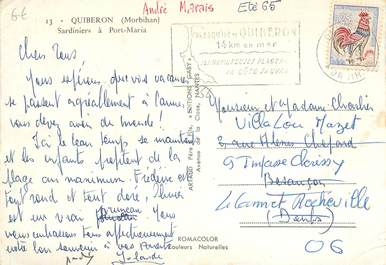 6€
André Marais
Eté 65
13 - QUIBERON (Morbihan)
Sardiniers à Port-Maria
PRESQU'ILE DE QUIBERON
14 km en mer
PLAGES
LA COTE SAUVAGE
Chers Tous
Nous espérons que vos vacances
se passent agréablement à Cannes,
vous devez avoir du monde !
Ici le beau temps se maintient
et les enfants profitent de la
plage au maximum. Frédéric est
tout rond et tout doré, Olivier
est un vrai pruneau. Nous
vous embrassons tous affectueusement
votre bon souvenir à vos parents
Andy Yolande
ARTAUD Père
Avenue de la Close, NANTES
"EDITIONS GABY"
ROMACOLOR
Couleurs Naturelles
Monsieur et Madame Charlier
Villa Lou Mazet
9 Impasse Clerissy
Besançon
Le Cannet Rocheville
(Doubs)
06